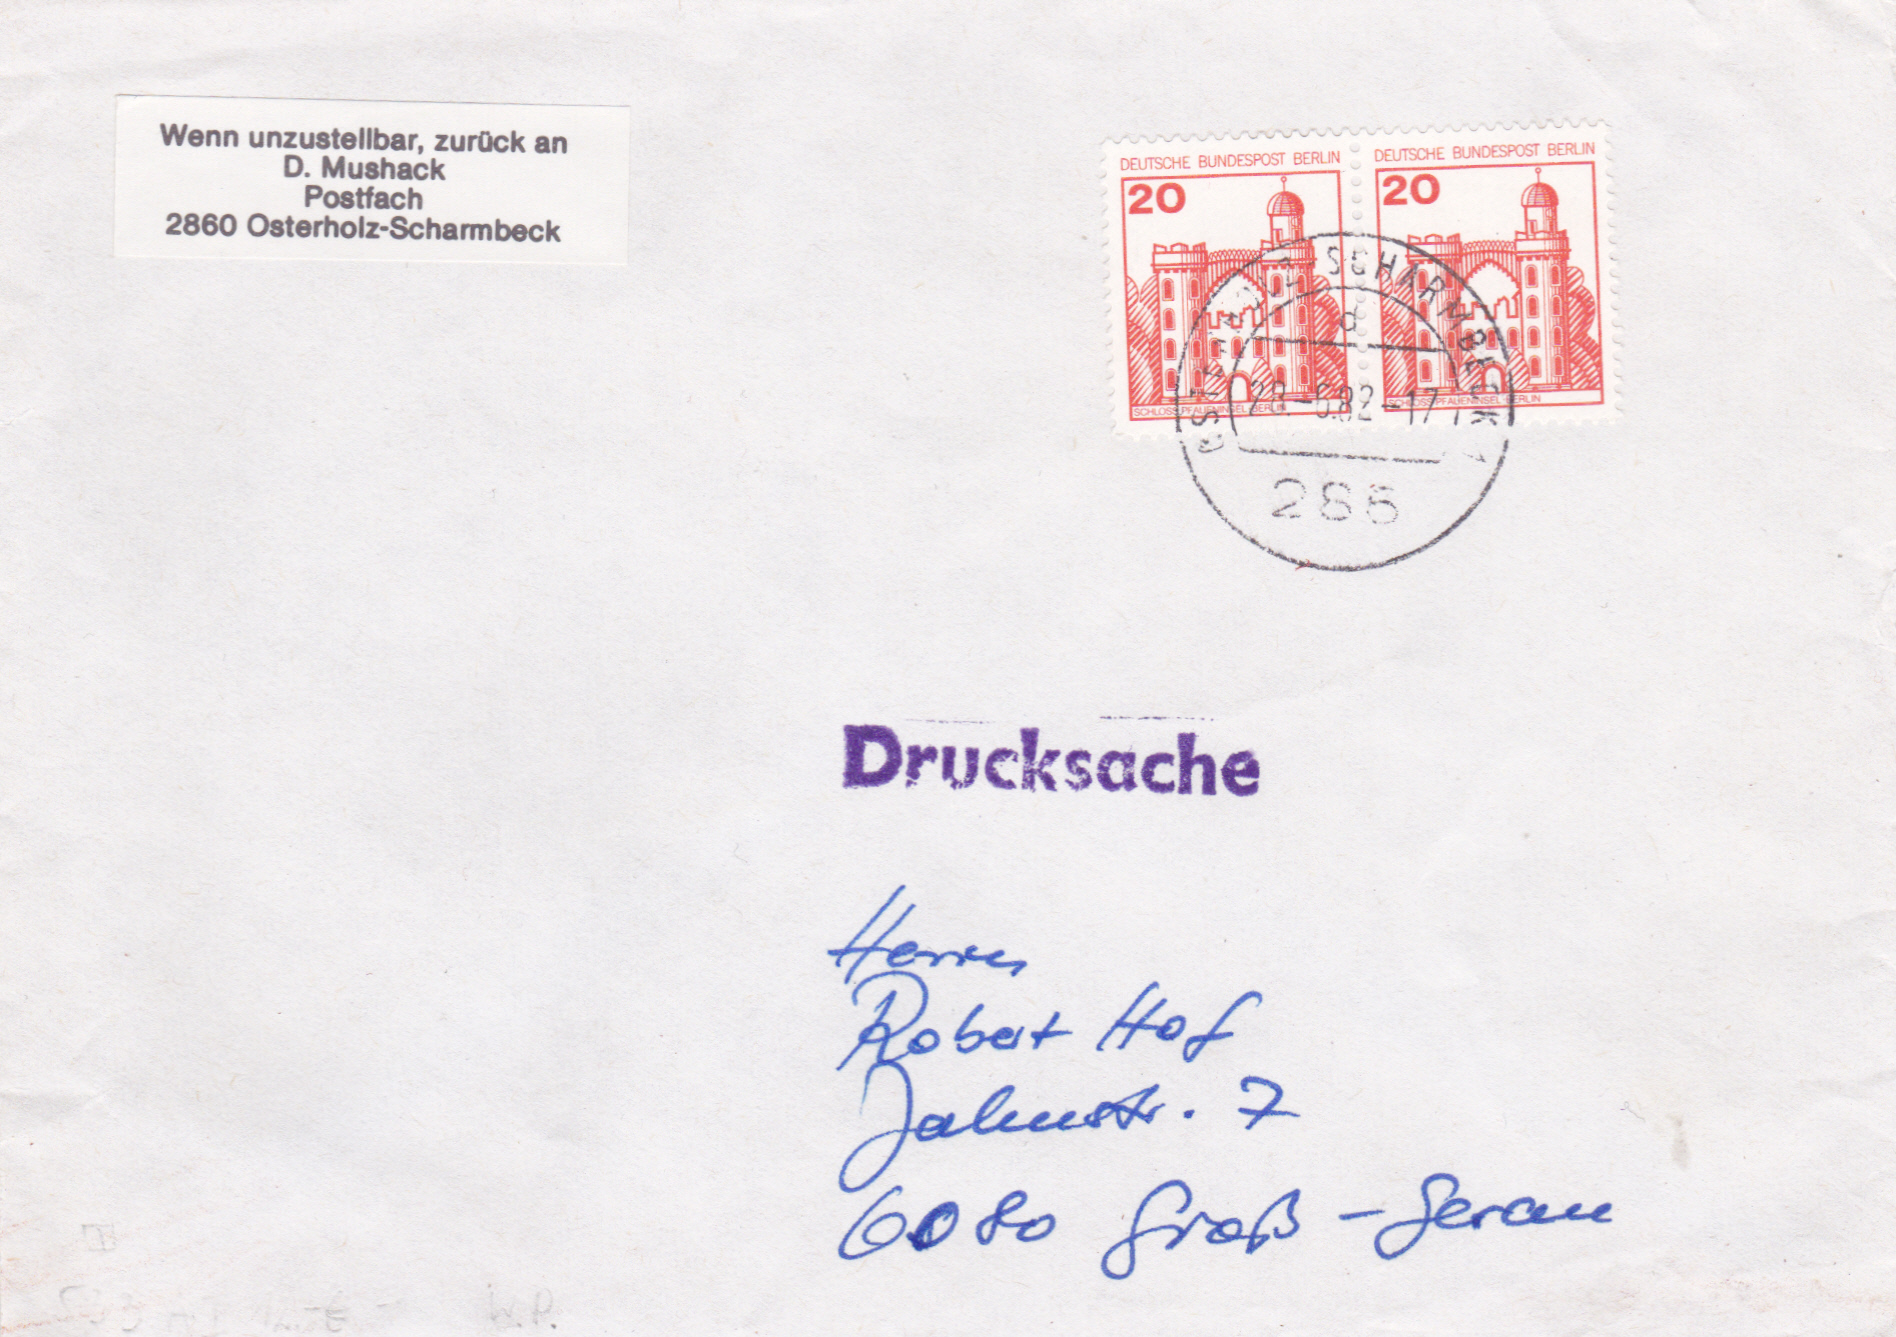 Wenn unzustellbar, zurück an
D. Mushack
Postfach
2860 Osterholz-Scharmbeck
DEUTSCHE BUNDESPOST BERLIN
20
SCHLOSS PFAUENINSEL BERLIN
DEUTSCHE BUNDESPOST BERLIN
20
SCHLOSS PFAUENINSEL BERLIN
OSTERHOLZ-SCHARMBECK 1
d
28.-6.82-17
286
Drucksache
Herrn
Robert Hof
Jahnstr. 7
6080 Groß-Gerau